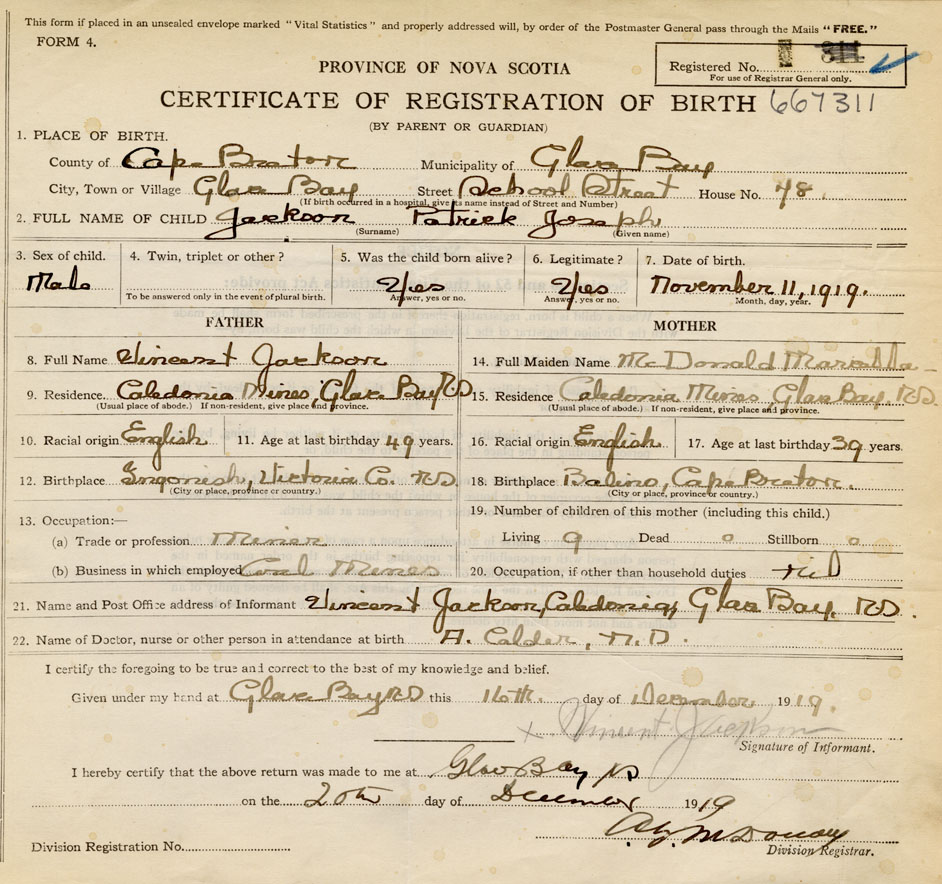 This form if placed in an unsealed envelope marked "Vital Statistics" and properly addressed will, by order of the Postmaster General pass through the Mails "FREE."
FORM 4.
PROVINCE OF NOVA SCOTIA
Registered No. 311
For use of Registrar General only.
CERTIFICATE OF REGISTRATION OF BIRTH 667311
(BY PARENT OR GUARDIAN)
1. PLACE OF BIRTH.
County of Cape Breton Municipality of Glace Bay
City, Town or Village Glace Bay Street School Street House No. 48.
(If birth occurred in a hospital, give its name instead of Street and Number)
2. FULL NAME OF CHILD Jackson Patrick Joseph
(Surname) (Given name)
3. Sex of child. 4. Twin, triplet or other? 5. Was the child born alive? 6. Legitimate? 7. Date of birth.
Male Yes Yes November 11, 1919.
To be answered only in the event of plural birth. Answer, yes or no. Answer, yes or no. Month, day, year.
FATHER MOTHER
8. Full Name Vincent Jackson 14. Full Maiden Name McDonald
9. Residence. Caledonia Mines, Glace Bay 15. Residence Caledonia Mines, Glace Bay
(Usual place of abode.) If non-resident, give place and province. (Usual place of abode.) If non-resident, give place and province.
10. Racial origin English 11. Age at last birthday 49 years. 16. Racial origin English 17. Age at last birthday 39 years.
12. Birthplace Ingonish, Victoria Co. 18. Birthplace Cape Breton.
(City or place, province or country.) (City or place, province or country.)
13. Occupation:— 19. Number of children of this mother (including this child.)
(a) Trade or profession Miner Living 9 Dead 0 Stillborn 0
(b) Business in which employed Coal Mines 20. Occupation, if other than household duties nil
21. Name and Post Office address of Informant Vincent Jackson, Caledonia, Glace Bay,
22. Name of Doctor, nurse or other person in attendance at birth A. Calder, M.D.
I certify the foregoing to be true and correct to the best of my knowledge and belief.
Given under my hand at Glace Bay this 16th. day of December 1919.
x Vincent Jackson
Signature of Informant.
I hereby certify that the above return was made to me at Glace Bay
on the 20th day of December 1919
Division Registration No. Division Registrar.